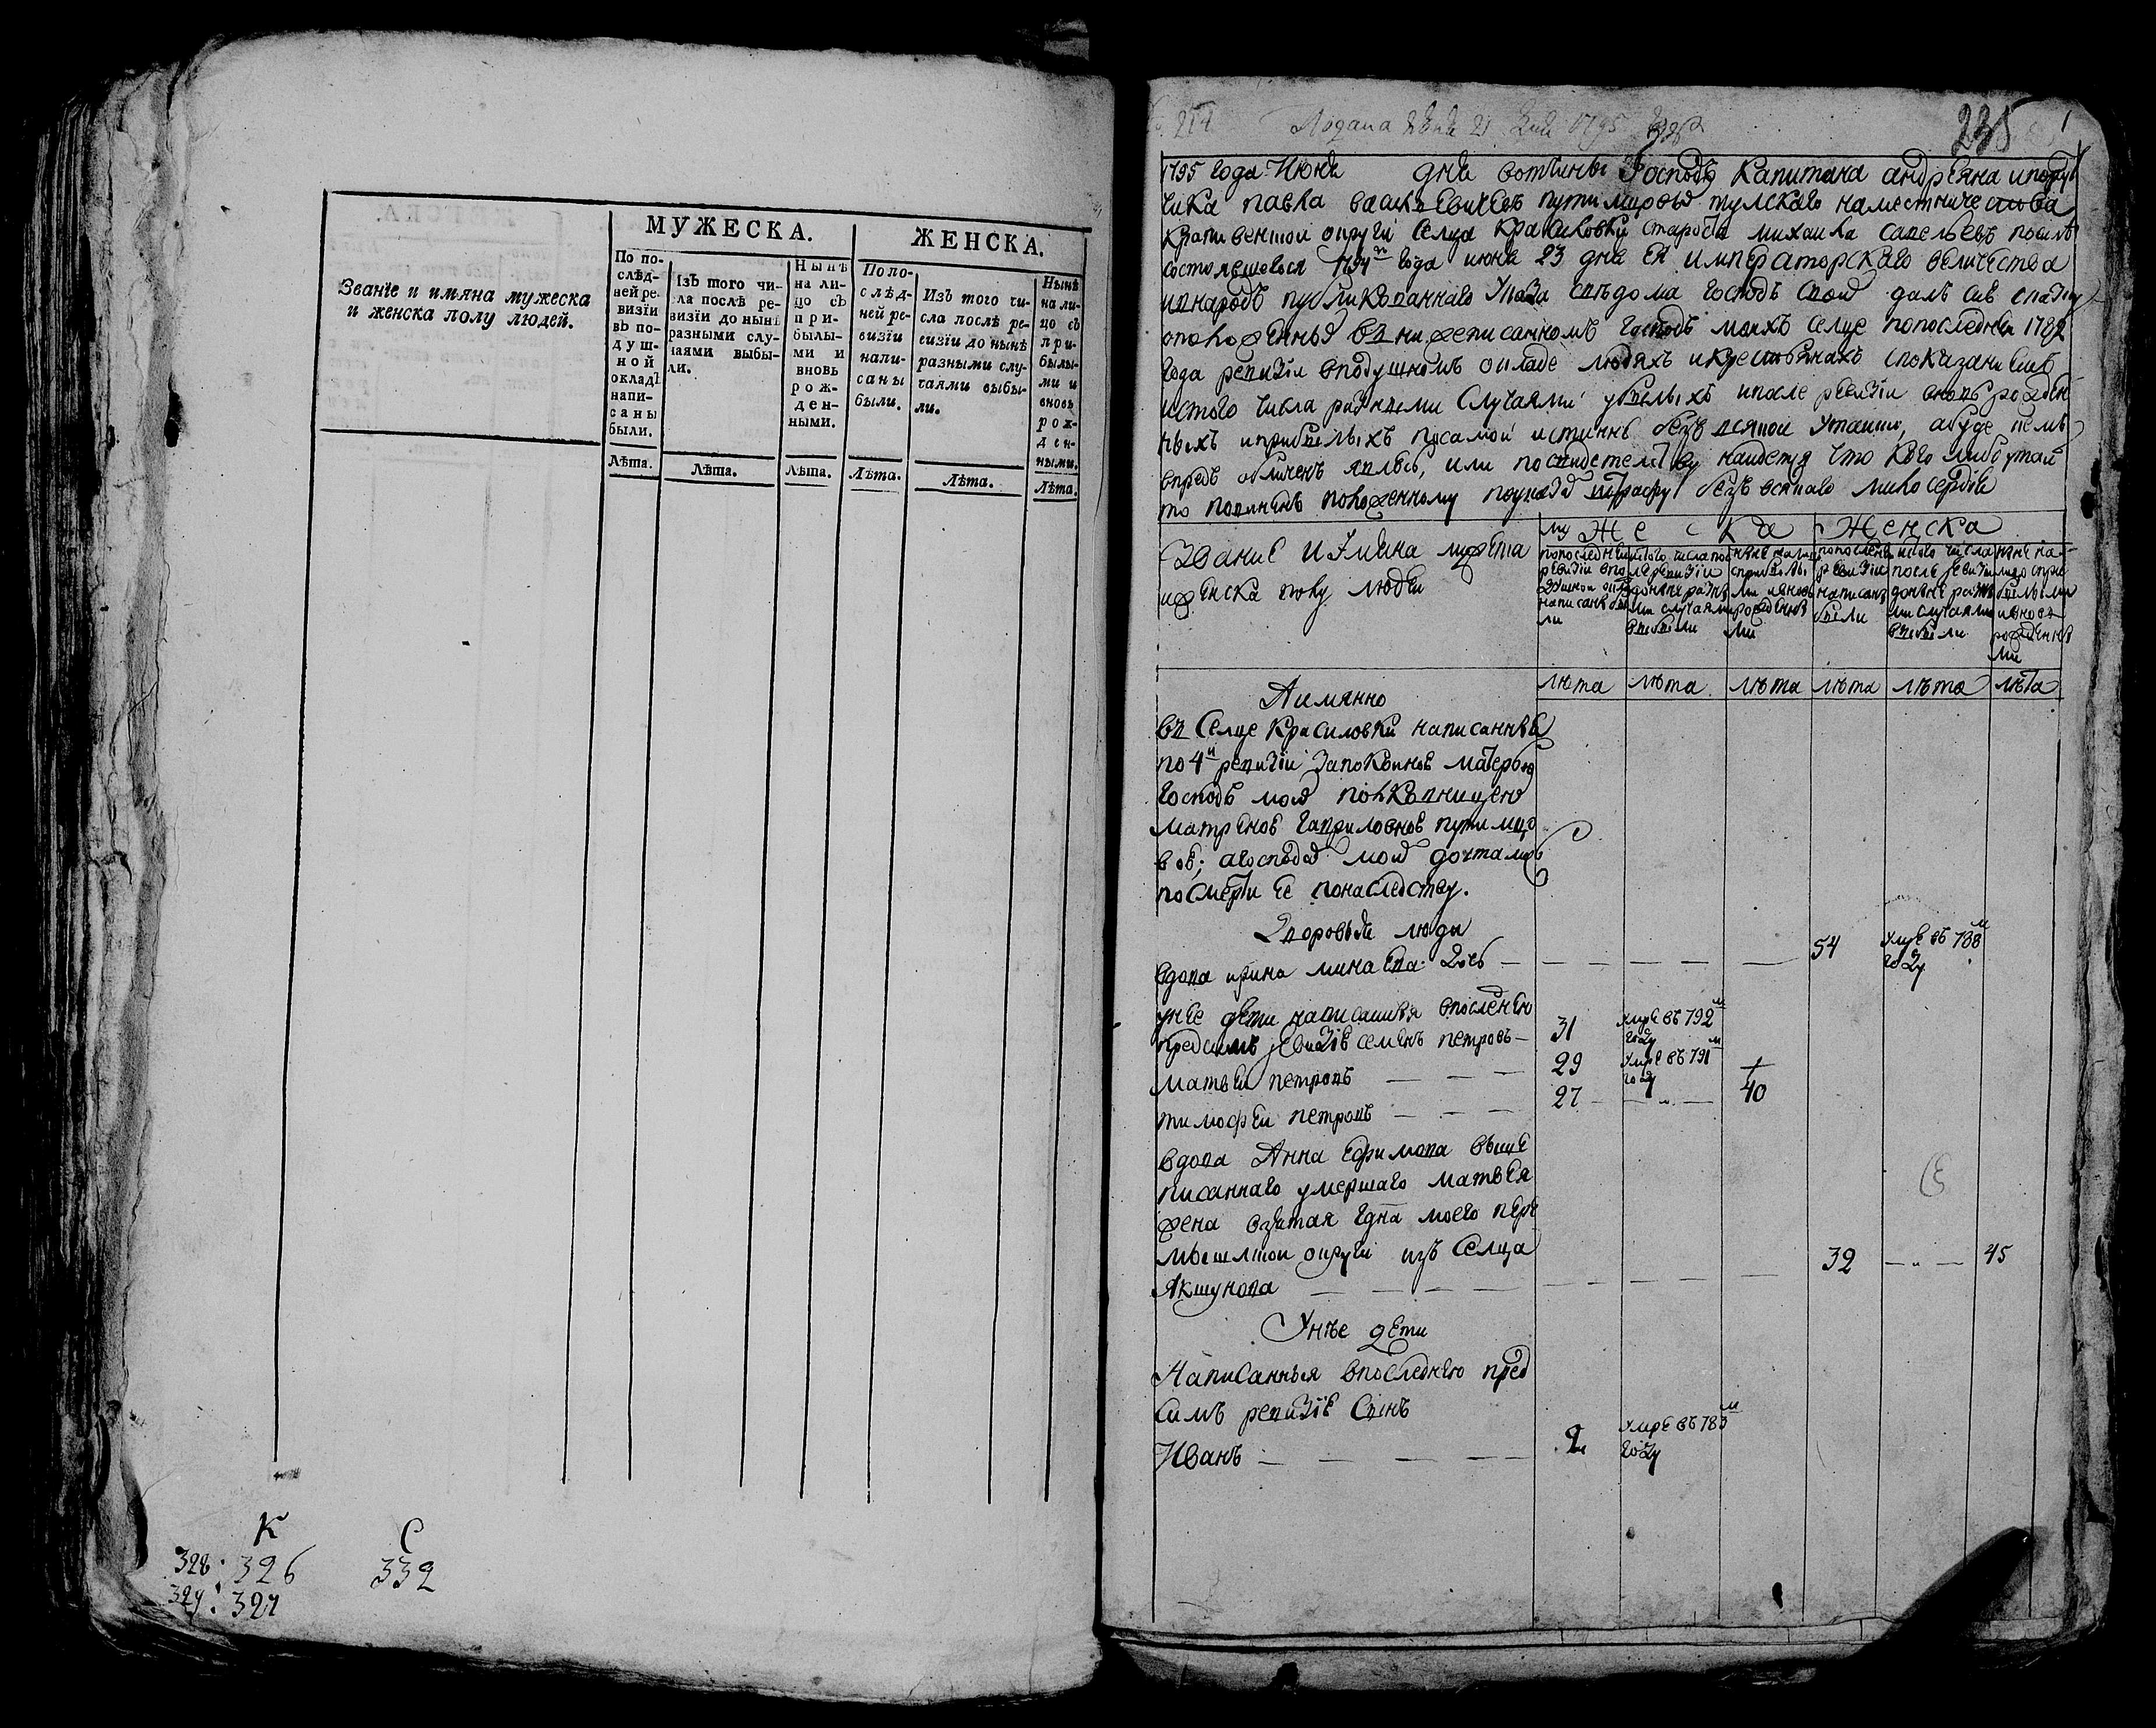 МУЖЕСКА.
ЖЕНСКА.
Званіе и имяна мужеска
и женска полу людей.
По по-
слѣд-
ней ре-
визіи
въ по-
душ-
ной
окладъ
напи-
саны
были.
Ізъ того чи-
сла послѣ ре-
визіи до нынѣ
разными слу-
чаями выбы-
ли.
Нынѣ
на ли-
цо съ
при-
былы-
ми и
вновь
рож-
ден-
ными.
По по-
слѣд-
ней ре-
визіи
напи-
саны
были.
Изъ того чи-
сла послѣ ре-
визіи до нынѣ
разными слу-
чаями выбы-
ли.
Нынѣ
на ли-
цо съ
при-
былы-
ми и
вновь
рож-
ден-
ными.
Лѣта. Лѣта. Лѣта. Лѣта. Лѣта. Лѣта.
К С
328: 326 332
329: 327
Подана 21 1795
235
1795 года Июня дня вотчины Господъ капитана андреяна и пору
чика павла васильевичевъ путимцовыхъ тулскаго наместничества
крапивенской округи селца Красиловки староста михаила савельевъ по силѣ
состоявшегося 1794 года июня 23 дня ея императорскаго величества
и в народъ публикованнаго указа с ведома господъ своихъ далъ сию скаску
о положенныхъ в нижеписанномъ господъ моихъ селце по последней 1782
года ревизіи в подушномъ окладе людяхъ и крестьянахъ с показаниемъ
ис того числа разными случаями убылыхъ и после ревизіи вновь рожден
ныхъ и прибылыхъ по самой истиннѣ безъ всякой утайки, а буде в чемъ
впредь обличенъ явлюсь, или по свидетелству найдетца что кого либо утаилъ
то повиненъ положенному по указу штрафу безъ всякаго милосердія
Звание и имяна мужеска
и женска полу людей
мужеска женска
по последней
ревизіи в по
душной окладъ
написаны бы
ли
ис того числа по
сле ревизіи
до ныне разны
ми случаями
выбыли
ныне на лицо
с прибылы
ми и вновь
рожденны
ми
по последней
ревизіи
написаны
были
ис того числа
после ревизіи
до ныне разны
ми случаями
выбыли
ныне на
лицо с при
былыми
и вновь
рожденны
ми
лѣта лѣта лѣта лѣта лѣта лѣта
А имянно
въ селце Красиловки написанныя
по 4й ревизіи за покойной матерью
господъ моихъ полковницею
матреной гавриловной путимцо
вой; а господамъ моимъ достались
по смерти ее по наследству.
Дворовыя люди
вдова ирина минаева дочь 54 умре въ 788м году
у нее дети написанныя в последнею
предъ симъ ревизіе семенъ петровъ 31 умре въ 792м году
матвей петровъ 29 умре въ 791м году
тимофей петровъ 27 40
вдова Анна ефимова выше
писаннаго умершаго матвея
жена взятая г дна моего пере
мышлской округи изъ селца
Якшунова 32 45
У нее дети
Написанныя в последнею предъ
симъ ревизіе сынъ
Иванъ 2 умре въ 783м году